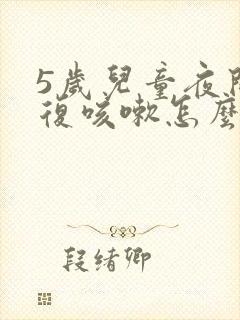 5歲兒童夜間
復咳嗽怎麼
段緒卿